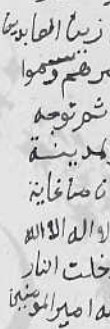 زين العابدين
مرهم وسموا
ثم توجه
لمدينة
ن صاغاية
لا اله الا الله
دخلت النار
ه امير المومنين